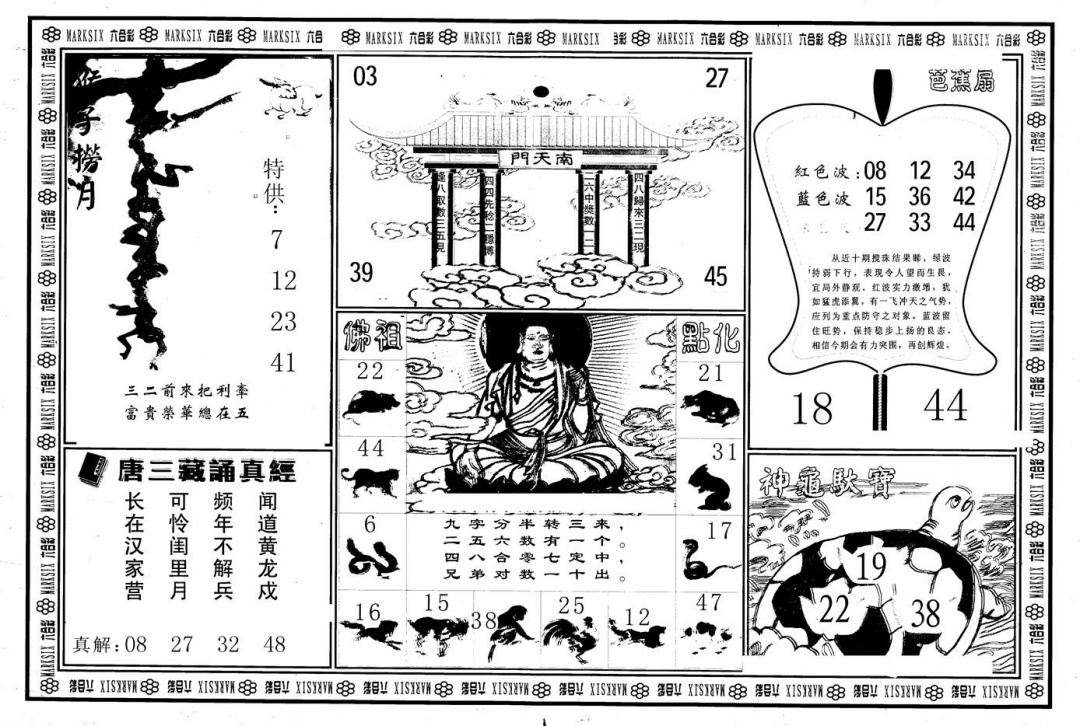 MARKSIX 六合彩 MARKSIX 六合彩 MARKSIX 六合彩 MARKSIX 六合彩 MARKSIX 六合彩 MARKSIX MARKSIX 六合彩 MARKSIX 六合彩 MARKSIX 六合彩 MARKSIX 六合彩
猴子撈月
特供：
7
12
23
41
三二前來把利牽
富貴榮華總在五
唐三藏誦真經
闻道黄龙戍
频年不解兵
可怜闺里月
长在汉家营
真解：08 27 32 48
03
27
南天門
逢八取數三五見
四四先稔一穩博
二六中獎數一二
四八歸來三二現
39
45
佛祖
點化
22
21
44
31
6
17
九字分半转三来，
二五六数有一个。
四八合零七定中，
兄弟对数一十出。
16
15
38
25
12
47
芭蕉扇
紅色波：08 12 34
藍色波 15 36 42
27 33 44
从近十期搅珠结果睇，绿波
持弱下行，表现令人望而生畏，
宜局外静观。红波实力激增，犹
如猛虎添翼，有一飞冲天之气势，
应列为重点防守之对象。蓝波留
住旺势，保持稳步上扬的良态，
相信今期会有力突围，再创辉煌。
18
44
神龜馱寶
19
22
38